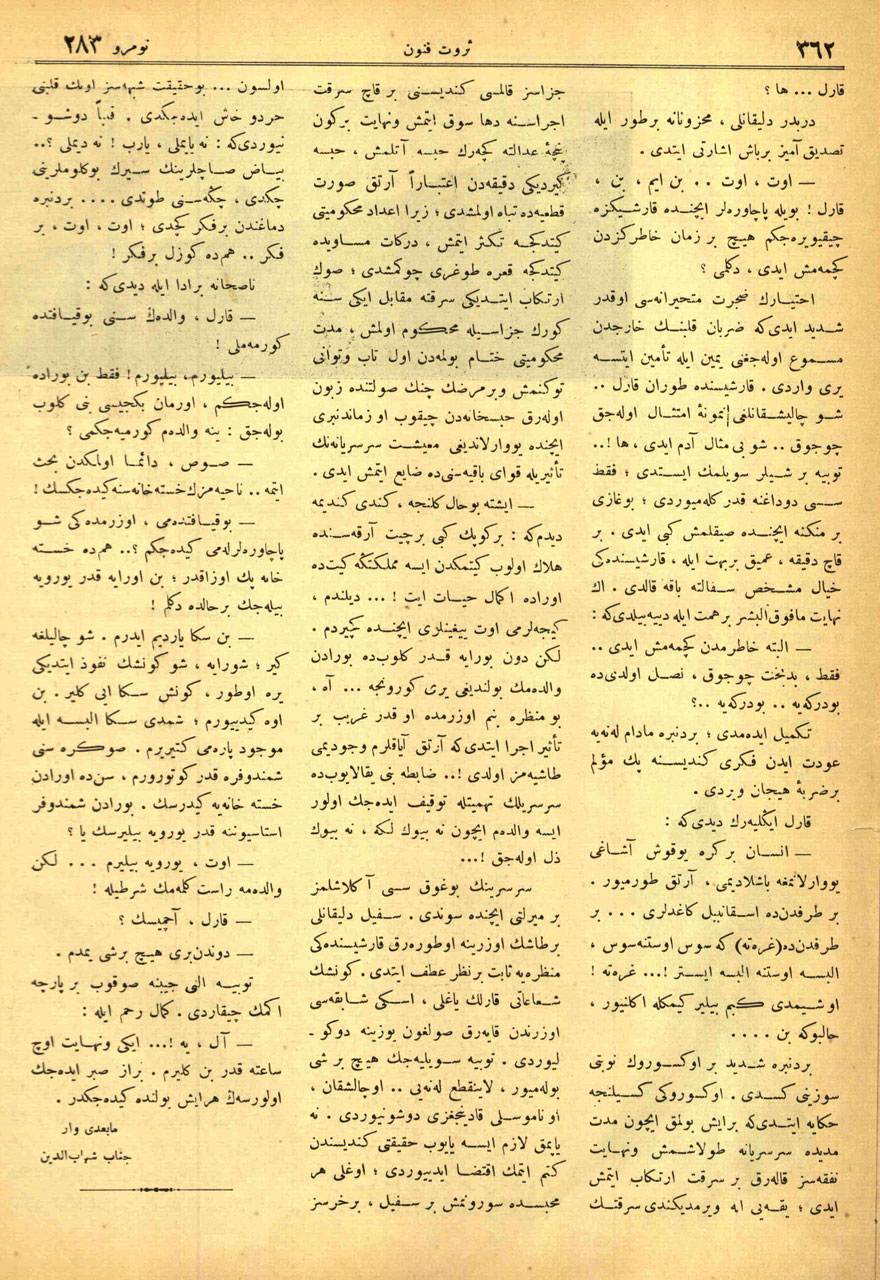 ٣٦٢
ثروت فنون
نومرو ٢٨٣
قارل ... ها ؟
دربدر دلیقانلی ، محزونانه برطور ایله
تصدیق آمیز برباش اشارتی ایتدی .
— اوت ، اوت .. بن ایم ، بن ،
قارل ! بویله پاچاوره‌لر ایچنده قارشیکزه
چیقیویره‌جکم هیچ بر زمان خاطرکزدن
کچمه‌مش ایدی ، دکلمی ؟
احتیارك ضجرت متحیرانه‌سی اوقدر
شدید ایدی‌که ضربان قلبنك خارجدن
مسموع اوله‌جغنی یمین ایله تأمین ایتسه
یری واردی . قارشیسنده طوران قارل ..
شو چالیشقانلغی نمونهٔ امتثال اوله‌جق
چوجوق .. شو بی مثال آدم ایدی ، ها !..
توبیه بر شیلر سویلمك ایستدی ؛ فقط
سسی دوداغنه قدر کله‌میوردی ؛ بوغازی
بر منکنه ایچنده صیقلمش کبی ایدی . بر
قاچ دقیقه ، عمیق بربهت ایله ، قارشیسنده‌کی
خیال مشخص سفالته باقه قالدی . اك
نهایت مافوق البشر برهمت ایله دییه بیلدی‌که :
— البته خاطرمدن کچمه‌مش ایدی ..
فقط ، بدبخت چوجوق ، نصل اولدی‌ده
بودرکه‌یه .. بودرکه‌یه ..؟
تکمیل ایده‌مدی ؛ بردنبره مادام له‌نه‌یه
عودت ایدن فکری کندیسنه پك مؤلم
برضربهٔ هیجان ویردی .
قارل ایکلیه‌رك دیدی‌که :
— انسان برکره یوقوش آشاغی
یووارلانمغه باشلادیمی ، آرتق طورمیور .
بر طرفدن‌ده اسقانبیل کاغدلری ... بر
طرفدن‌ده (غره‌ته) که سوس اوستنه‌سوس ،
البسه اوستنه البسه ایستر !... غره‌ته !
او شیمدی کیم بیلیر کیمکله اکلنیور ،
حالبوکه بن ....
بردنبره شدید بر اوکسوروك نوبتی
سوزینی کسدی . اوکسوروکی کسیلنجه
حکایه ایتدی‌که برایش بولمق ایچون مدت
مدیده سرسریانه طولاشمش ونهایت
نفقه‌سز قاله‌رق بر سرقت ارتکاب ایتمش
ایدی ؛ یقه‌یی اله ویرمدیکندی سرقتك
جزاسز قالمسی کندیسنی بر قاچ سرقت
اجراسنه دها سوق ایتمش ونهایت برکون
پنجهٔ عدالته کچه‌رك حبسه آتلمش ، حبسه
کیردیکی دقیقه‌دن اعتباراً آرتق صورت
قطعیه‌ده تباه اولمشدی ؛ زیرا اعداد محکومیتی
کیتدکجه تکثر ایتمش ، درکات مساویده
کیتدکجه قعره طوغری چوکمشدی ؛ صوك
ارتکاب ایتدیکی سرقته مقابل ایکی سنه
کورك جزاسیله محکوم اولمش ، مدت
محکومیتی ختام بولمه‌دن اول تاب وتوانی
توکنمش وبرمرضك چنك صولتنده زبون
اوله‌رق حبسخانه‌دن چیقوب اوزماندنبری
ایچنده یووارلاندیغی معیشت سرسریانه‌نك
تأثیریله قوای باقیه‌سنی‌ده ضایع ایتمش ایدی .
— ایشته بوحال کلنجه ، کندی کندیمه
دیدم‌که : برکوپك کبی برچیت آرقه‌سنده
هلاك اولوب کیتمکدن ایسه مملکتکه کیت‌ده
اوراده اکمال حیات ایت ! ... دیلندم ،
کیجه‌لرمی اوت ییغینلری ایچنده کچیردم .
لکن دون بورایه قدر کلوب‌ده بورادن
والده‌مك بولندیغی یری کورونجه ... آه ،
بو منظره بنم اوزرمده او قدر غریب بر
تأثیر اجرا ایتدی‌که آرتق آیاقلرم وجودیمی
طاشیه‌مز اولدی !.. ضابطه بنی یقالایوب‌ده
سرسریلك تهمتیله توقیف ایده‌جك اولور
ایسه والده‌م ایچون نه بیوك لکه ، نه بیوك
ذل اوله‌جق !...
سرسرینك بوغوق سسی آکلاشلمز
بر میرلتی ایچنده سوندی . سفیل دلیقانلی
برطاشك اوزرینه اوطوره‌رق قارشیسنده‌کی
منظره‌یه ثابت برنظر عطف ایتدی . کونشك
شعاعاتی قارلك یاغلی ، اسکی شابقه‌سی
اوزرندن قایه‌رق صولغون یوزینه دوکو -
لیوردی . توبیه سویلیه‌جك هیچ بر شی
بوله‌میور ، لاینقطع له‌نه‌یی .. اوچالشقان ،
او ناموسلی قادینجغزی دوشونیوردی . نه
یاپمق لازم ایسه یاپوب حقیقتی کندیسندن
کتم ایتمك اقتضا ایدییوردی ؛ اوغلی هر
محبسده سورونمش بر سفیل ، برخرسز
اولسون ... بوحقیقت شبهه‌سز اونك قلبنی
خردو خاش ایده‌جکدی . قیاً دوشو -
نیوردی‌که : نه یاپملی ، یارب ! نه دیملی ؟..
بیاض صاچلرینك سیرك بوکلوملرینی
چکدی ، چکه‌سنی طوتدی .... بردنبره
دماغندن برفکر کچدی ؛ اوت ، اوت ، بر
فکر .. هم‌ده کوزل برفکر !
ناصحانه برادا ایله دیدی‌که :
— قارل ، والده‌ك سنی بوقیافتده
کورمه‌ملی !
— بیلیورم ، بیلیورم ! فقط بن بوراده
اوله‌جکم ، اورمان بکجیسی بنی کلوب
بوله‌جق : ینه والده‌م کورمیه‌جکمی ؟
— صوص ، دائما اولمکدن بحث
ایتمه .. ناحیه‌مزك خسته خانه‌سنه کیده‌جکسك !
— بوقیافتده‌می ، اوزرمده‌کی شو
پاچاوره‌لرله‌می کیده‌جکم ؟.. هم‌ده خسته
خانه پك اوزاقدر ؛ بن اورایه قدر یورویه
بیله‌جك برحالده دکلم !
— بن سکا یاردیم ایدرم . شو چالیلغه
کیر ؛ شورایه ، شو کونشك نفوذ ایتدیکی
یره اوطور ، کونش سکا ایی کلیر . بن
اوه کیدییورم ؛ شمدی سکا البسه ایله
موجود پاره‌می کتیریرم . صوکره سنی
شمندوفره قدر کوتورورم ، سن‌ده اورادن
خسته خانه‌یه کیدرسك . بورادن شمندوفر
استاسیوننه قدر یورویه بیلیرسك یا ؟
— اوت ، یورویه بیلیرم ... لکن
والده‌مه راست کلمه‌مك شرطیله !
— قارل . آجمیسك ؟
— دوندن‌بری هیچ برشی یمدم .
توبیه الی جیبنه صوقوب بر پارچه
اکمك چیقاردی . کمال رحم ایله :
— آل ، یه !... ایکی ونهایت اوچ
ساعته قدر بن کلیرم . براز صبر ایده‌جك
اولورسه‌ك هرایش یولنده کیده‌جکدر .
مابعدی وار
جناب شهاب‌الدین